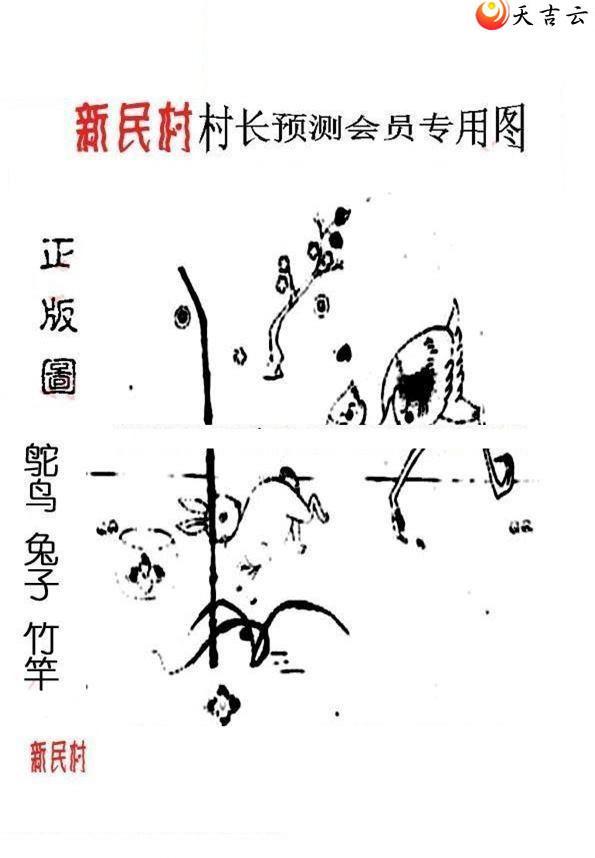 天吉云
新民村村长预测会员专用图
正版圖
鸵鸟 兔子 竹竿
新民村